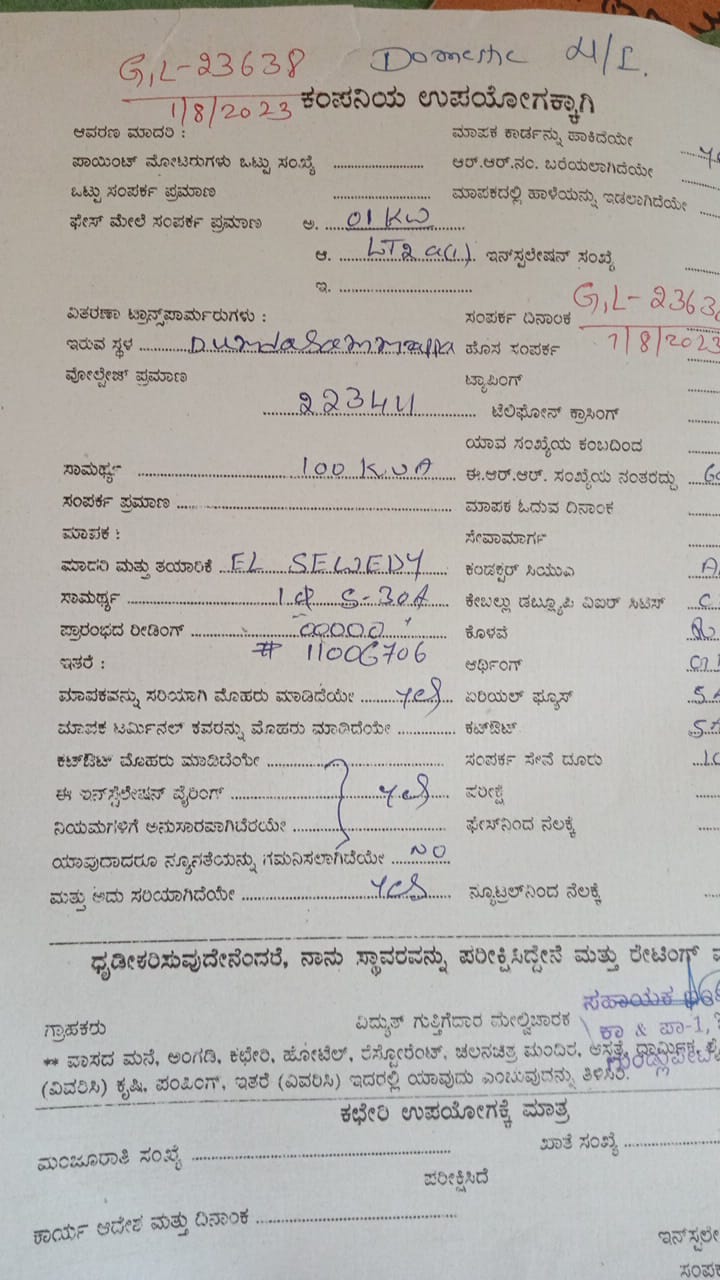 G,L-23638 Domestic M/I.
1/8/2023 ಕಂಪನಿಯ ಉಪಯೋಗಕ್ಕಾಗಿ
ಆವರಣ ಮಾದರಿ : ಮಾಪಕ ಕಾರ್ಡನ್ನು ಹಾಕಿದೆಯೇ
ಪಾಯಿಂಟ್ ಮೋಟರುಗಳು ಒಟ್ಟು ಸಂಖ್ಯೆ .......... ಆರ್.ಆರ್.ನಂ. ಬರೆಯಲಾಗಿದೆಯೇ
ಒಟ್ಟು ಸಂಪರ್ಕ ಪ್ರಮಾಣ .......... ಮಾಪಕದಲ್ಲಿ ಹಾಳೆಯನ್ನು ಇಡಲಾಗಿದೆಯೇ
ಫೇಸ್ ಮೇಲೆ ಸಂಪರ್ಕ ಪ್ರಮಾಣ ಅ. 01 KW
ಆ. LT2 a(1). ಇನ್‌ಸ್ಟಲೇಷನ್ ಸಂಖ್ಯೆ
ಇ. ..........
ವಿತರಣಾ ಟ್ರಾನ್ಸ್‌ಪಾರ್ಮರುಗಳು : ಸಂಪರ್ಕ ದಿನಾಂಕ G,L-2363
ಇರುವ ಸ್ಥಳ ಹೊಸ ಸಂಪರ್ಕ 1/8/2023
ವೋಲ್ಟೇಜ್ ಪ್ರಮಾಣ ಟ್ಯಾಪಿಂಗ್
ಟೆಲಿಫೋನ್ ಕ್ರಾಸಿಂಗ್
ಯಾವ ಸಂಖ್ಯೆಯ ಕಂಬದಿಂದ
ಸಾಮರ್ಥ್ಯ 100 KVA ಈ.ಆರ್.ಆರ್. ಸಂಖ್ಯೆಯ ನಂತರದ್ದು
ಸಂಪರ್ಕ ಪ್ರಮಾಣ .......... ಮಾಪಕ ಓದುವ ದಿನಾಂಕ
ಮಾಪಕ : ಸೇವಾಮಾರ್ಗ
ಮಾದರಿ ಮತ್ತು ತಯಾರಿಕೆ EL SEWEDY ಕಂಡಕ್ಟರ್ ಸಿಯುಎ
ಸಾಮರ್ಥ್ಯ 1Φ 5-30A ಕೇಬಲ್ಲು ಡಬ್ಲ್ಯೂಪಿ ವಿಐರ್ ಸಿಟಿಸ್
ಪ್ರಾರಂಭದ ರೀಡಿಂಗ್ 00000 ಕೊಳವೆ
# 11006706
ಇತರೆ : ಆರ್ಥಿಂಗ್
ಮಾಪಕವನ್ನು ಸರಿಯಾಗಿ ಮೊಹರು ಮಾಡಿದೆಯೇ yes ಏರಿಯಲ್ ಫ್ಯೂಸ್
ಮಾಪಕ ಟರ್ಮಿನಲ್ ಕವರನ್ನು ಮೊಹರು ಮಾಡಿದೆಯೇ .......... ಕಟ್‌ಔಟ್
ಕಟ್‌ಔಟ್ ಮೊಹರು ಮಾಡಿದೆಯೇ .......... ಸಂಪರ್ಕ ಸೇವೆ ದೂರು
ಈ ಇನ್‌ಸ್ಟೆಲೇಷನ್ ವೈರಿಂಗ್ yes ಪರೀಕ್ಷೆ
ನಿಯಮಗಳಿಗೆ ಅನುಸಾರವಾಗಿಟೆರಯೇ .......... ಫೇಸ್‌ನಿಂದ ನೆಲಕ್ಕೆ
ಯಾವುದಾದರೂ ನ್ಯೂನತೆಯನ್ನು ಗಮನಿಸಲಾಗಿದೆಯೇ NO
ಮತ್ತು ಅದು ಸರಿಯಾಗಿದೆಯೇ yes ನ್ಯೂಟ್ರಲ್‌ನಿಂದ ನೆಲಕ್ಕೆ
ಧೃಡೀಕರಿಸುವುದೇನೆಂದರೆ, ನಾನು ಸ್ಥಾವರವನ್ನು ಪರೀಕ್ಷಿಸಿದ್ದೇನೆ ಮತ್ತು ರೇಟಿಂಗ್
ಸಹಾಯಕ
ಗ್ರಾಹಕರು ವಿದ್ಯುತ್ ಗುತ್ತಿಗೆದಾರ ಮೇಲ್ವಿಚಾರಕ ಕಾ & ಪಾ-1,
** ವಾಸದ ಮನೆ, ಅಂಗಡಿ, ಕಛೇರಿ, ಹೋಟೆಲ್, ರೆಸ್ಟೋರೆಂಟ್, ಚಲನಚಿತ್ರ ಮಂದಿರ, ಆಸ್ಪತ್ರೆ, ಧಾರ್ಮಿಕ,
(ವಿವರಿಸಿ) ಕೃಷಿ, ಪಂಪಿಂಗ್, ಇತರೆ (ವಿವರಿಸಿ) ಇದರಲ್ಲಿ ಯಾವುದು ಎಂಬುವುದನ್ನು ತಿಳಿಸಿರಿ.
ಕಛೇರಿ ಉಪಯೋಗಕ್ಕೆ ಮಾತ್ರ
ಮಂಜೂರಾತಿ ಸಂಖ್ಯೆ .......... ಖಾತೆ ಸಂಖ್ಯೆ ..........
ಪರೀಕ್ಷಿಸಿದೆ
ಕಾರ್ಯ ಆದೇಶ ಮತ್ತು ದಿನಾಂಕ ..........
ಇನ್‌ಸ್ಟಲೇ
ಸಂಪರ್ಕ